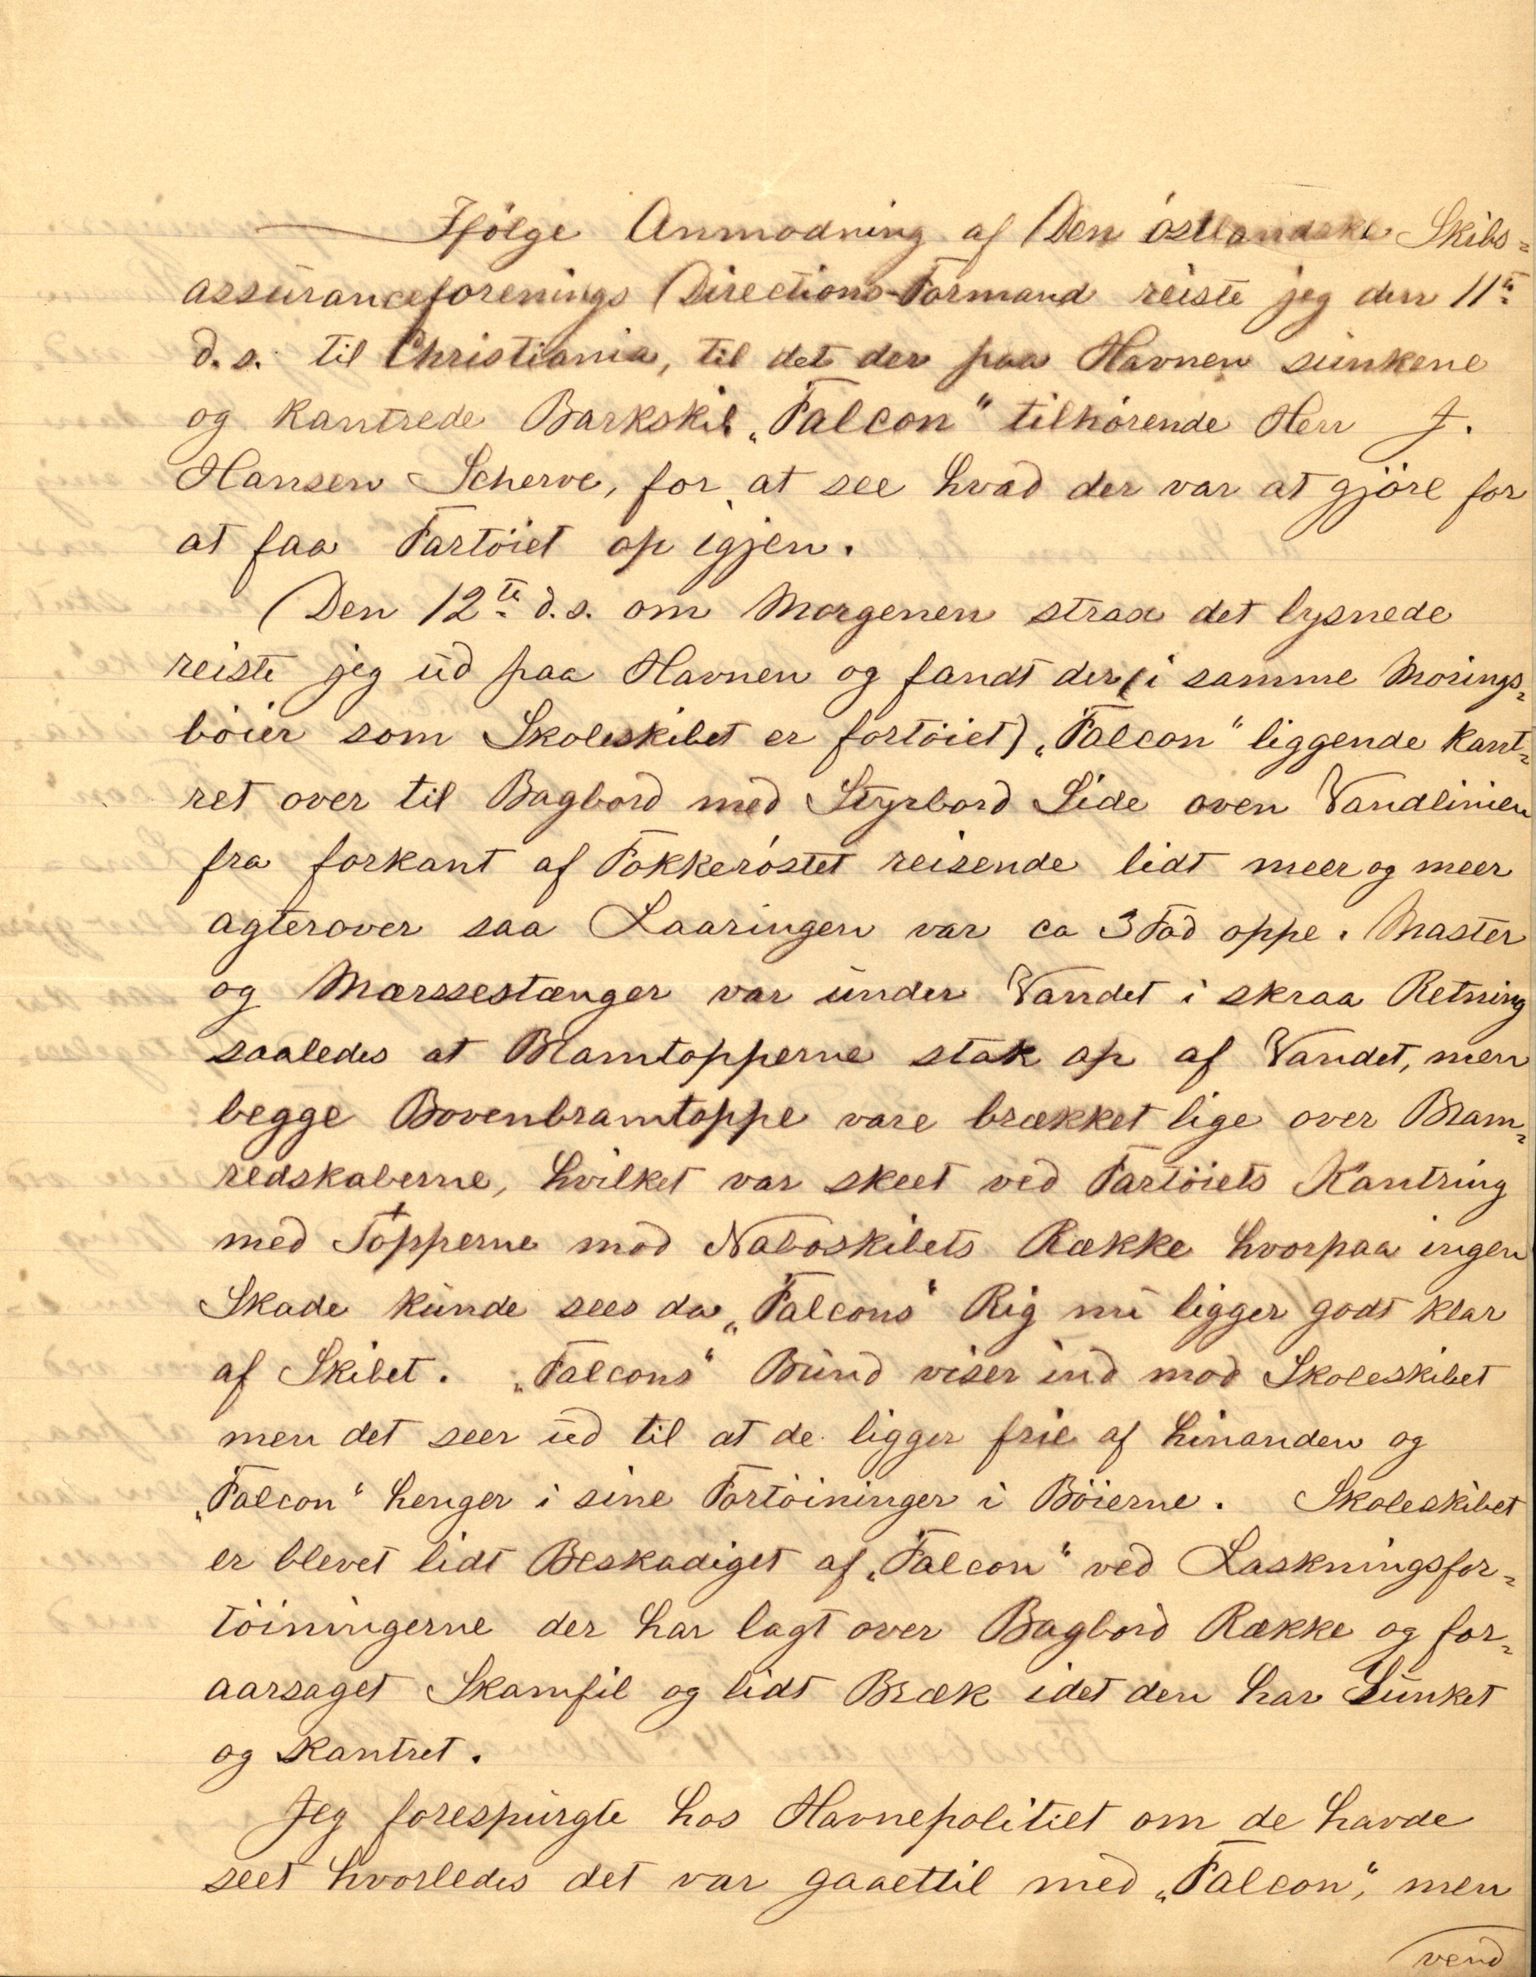 Ifølge Anmodning af Den østlandske Skibs=
assuranceforenings Directions-Formand reiste jeg den 11te
d.s. til Christiania, til det der paa Havnen sunkene
og kantrede Barkskib „Falcon“ tilhørende Herr J.
Hansen Scherve, for at see hvad der var at gjøre for
at faa Fartøiet op igjen.
Den 12te d.s. om Morgenen strax det lysnede
reiste jeg ud paa Havnen og fandt der (i samme Morings=
bøier som Skoleskibet er fortøiet) „Falcon“ liggende kant=
ret over til Bagbord med Styrbord Side oven Vandlinien
fra forkant af Fokkerøstet reisende lidt meer og meer
agterover saa Laaringen var ca 3 Fod oppe. Master
og Mærssestænger var under Vandet i skraa Retning
saaledes at Bramtopperne stak op af Vandet, men
begge Bovenbramtoppe vare brækket lige over Bram=
redskaberne, hvilket var skeet ved Fartøiets Kantring
med Topperne mod Naboskibets Række hvorpaa ingen
Skade kunde sees da „Falcons“ Rig nu ligger godt klar
af Skibet. „Falcons“ Bund viser ind mod Skoleskibet
men det seer ud til at de ligger frie af hinanden og
„Falcon“ henger i sine Fortøininger i Bøierne. Skoleskibet
er blevet lidt Beskadiget af „Falcon“ ved Laskningsfor=
tøiningerne der har lagt over Bagbord Række og for=
aarsaget Skamfil og lidt Bræk idet den har Sunket
og kantret.
Jeg forespurgte hos Havnepolitiet om de havde
seet hvorledes det var gaaettil med „Falcon“, men
vend